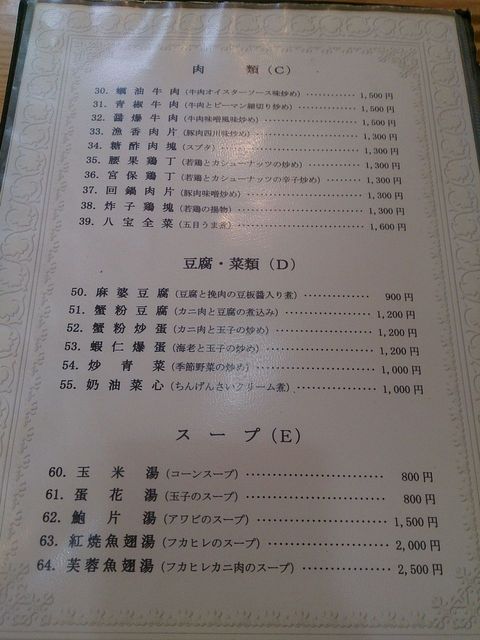 肉 類 (C)
30. 蠣油牛肉 (牛肉オイスターソース味炒め) ………… 1,500円
31. 青椒牛肉 (牛肉とピーマン細切り炒め) ………… 1,500円
32. 醤爆牛肉 (牛肉味噌風味炒め) ………… 1,500円
33. 漁香肉片 (豚肉四川味炒め) ………… 1,300円
34. 糖酢肉塊 (スブタ) ………… 1,300円
35. 腰果鶏丁 (若鶏とカシューナッツの炒め) ………… 1,300円
36. 宮保鶏丁 (若鶏とカシューナッツの辛子炒め) ………… 1,300円
37. 回鍋肉片 (豚肉味噌炒め) ………… 1,300円
38. 炸子鶏塊 (若鶏の揚物) ………… 1,300円
39. 八宝全菜 (五目うま煮) ………… 1,600円
豆腐・菜類 (D)
50. 麻婆豆腐 (豆腐と挽肉の豆板醤入り煮) ………… 900円
51. 蟹粉豆腐 (カニ肉と豆腐の煮込み) ………… 1,200円
52. 蟹粉炒蛋 (カニ肉と玉子の炒め) ………… 1,200円
53. 蝦仁爆蛋 (海老と玉子の炒め) ………… 1,200円
54. 炒青菜 (季節野菜の炒め) ………… 1,000円
55. 奶油菜心 (ちんげんさいクリーム煮) ………… 1,000円
スープ (E)
60. 玉米湯 (コーンスープ) ………… 800円
61. 蛋花湯 (玉子のスープ) ………… 800円
62. 鮑片湯 (アワビのスープ) ………… 1,500円
63. 紅焼魚翅湯 (フカヒレのスープ) ………… 2,000円
64. 芙蓉魚翅湯 (フカヒレカニ肉のスープ) ………… 2,500円